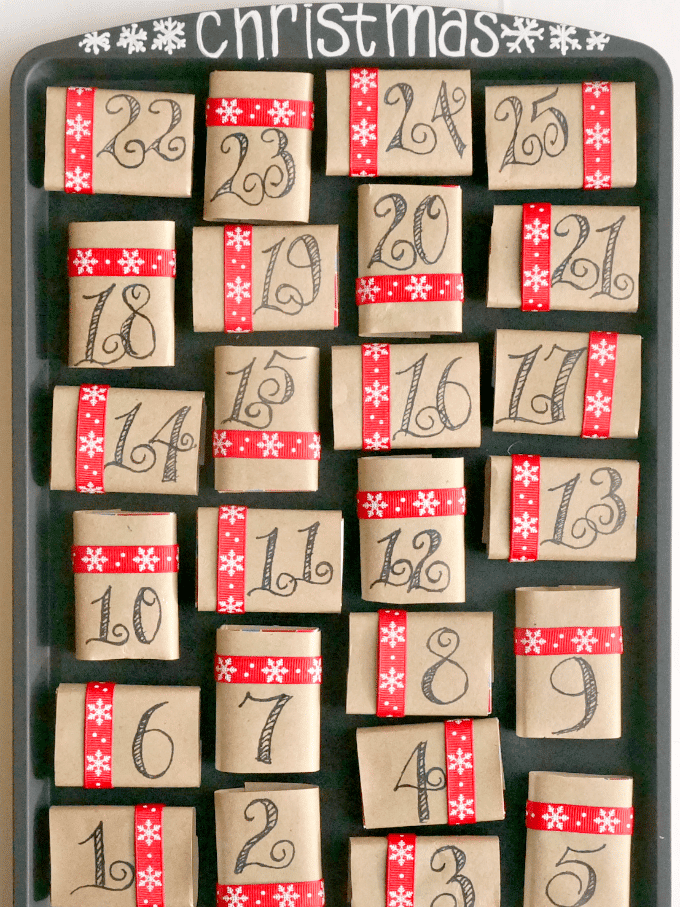 christmas
22 23 24 25
18 19 20 21
14 15 16 17
10 11 12 13
6 7 8 9
1 2 4 3 5